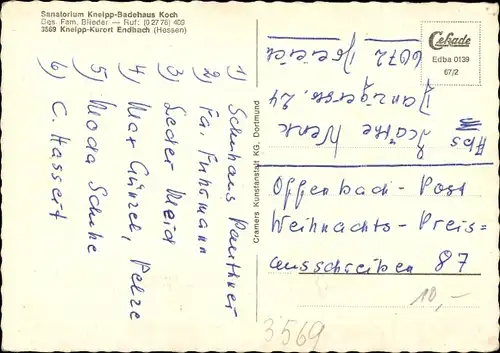 Sanatorium Kneipp-Badehaus Koch
Bes. Fam. Blieder — Ruf: (0 27 76) 409
3569 Kneipp-Kurort Endbach (Hessen)
1) Schuhaus Panthner
2) Fa. Fuhrmann
3) Leder Meid
4) Max Günzel, Pelze
5) Moda Schuhe
6) C. Hassert
Cramers Kunstanstalt KG, Dortmund
Cekade
Edba 0139
67/2
Abs
Käthe Wenk
Danzigerstr. 24
6072 Dreieich
Offenbach-Post
Weihnachts-Preis=
ausschreiben 87
10,-
3569